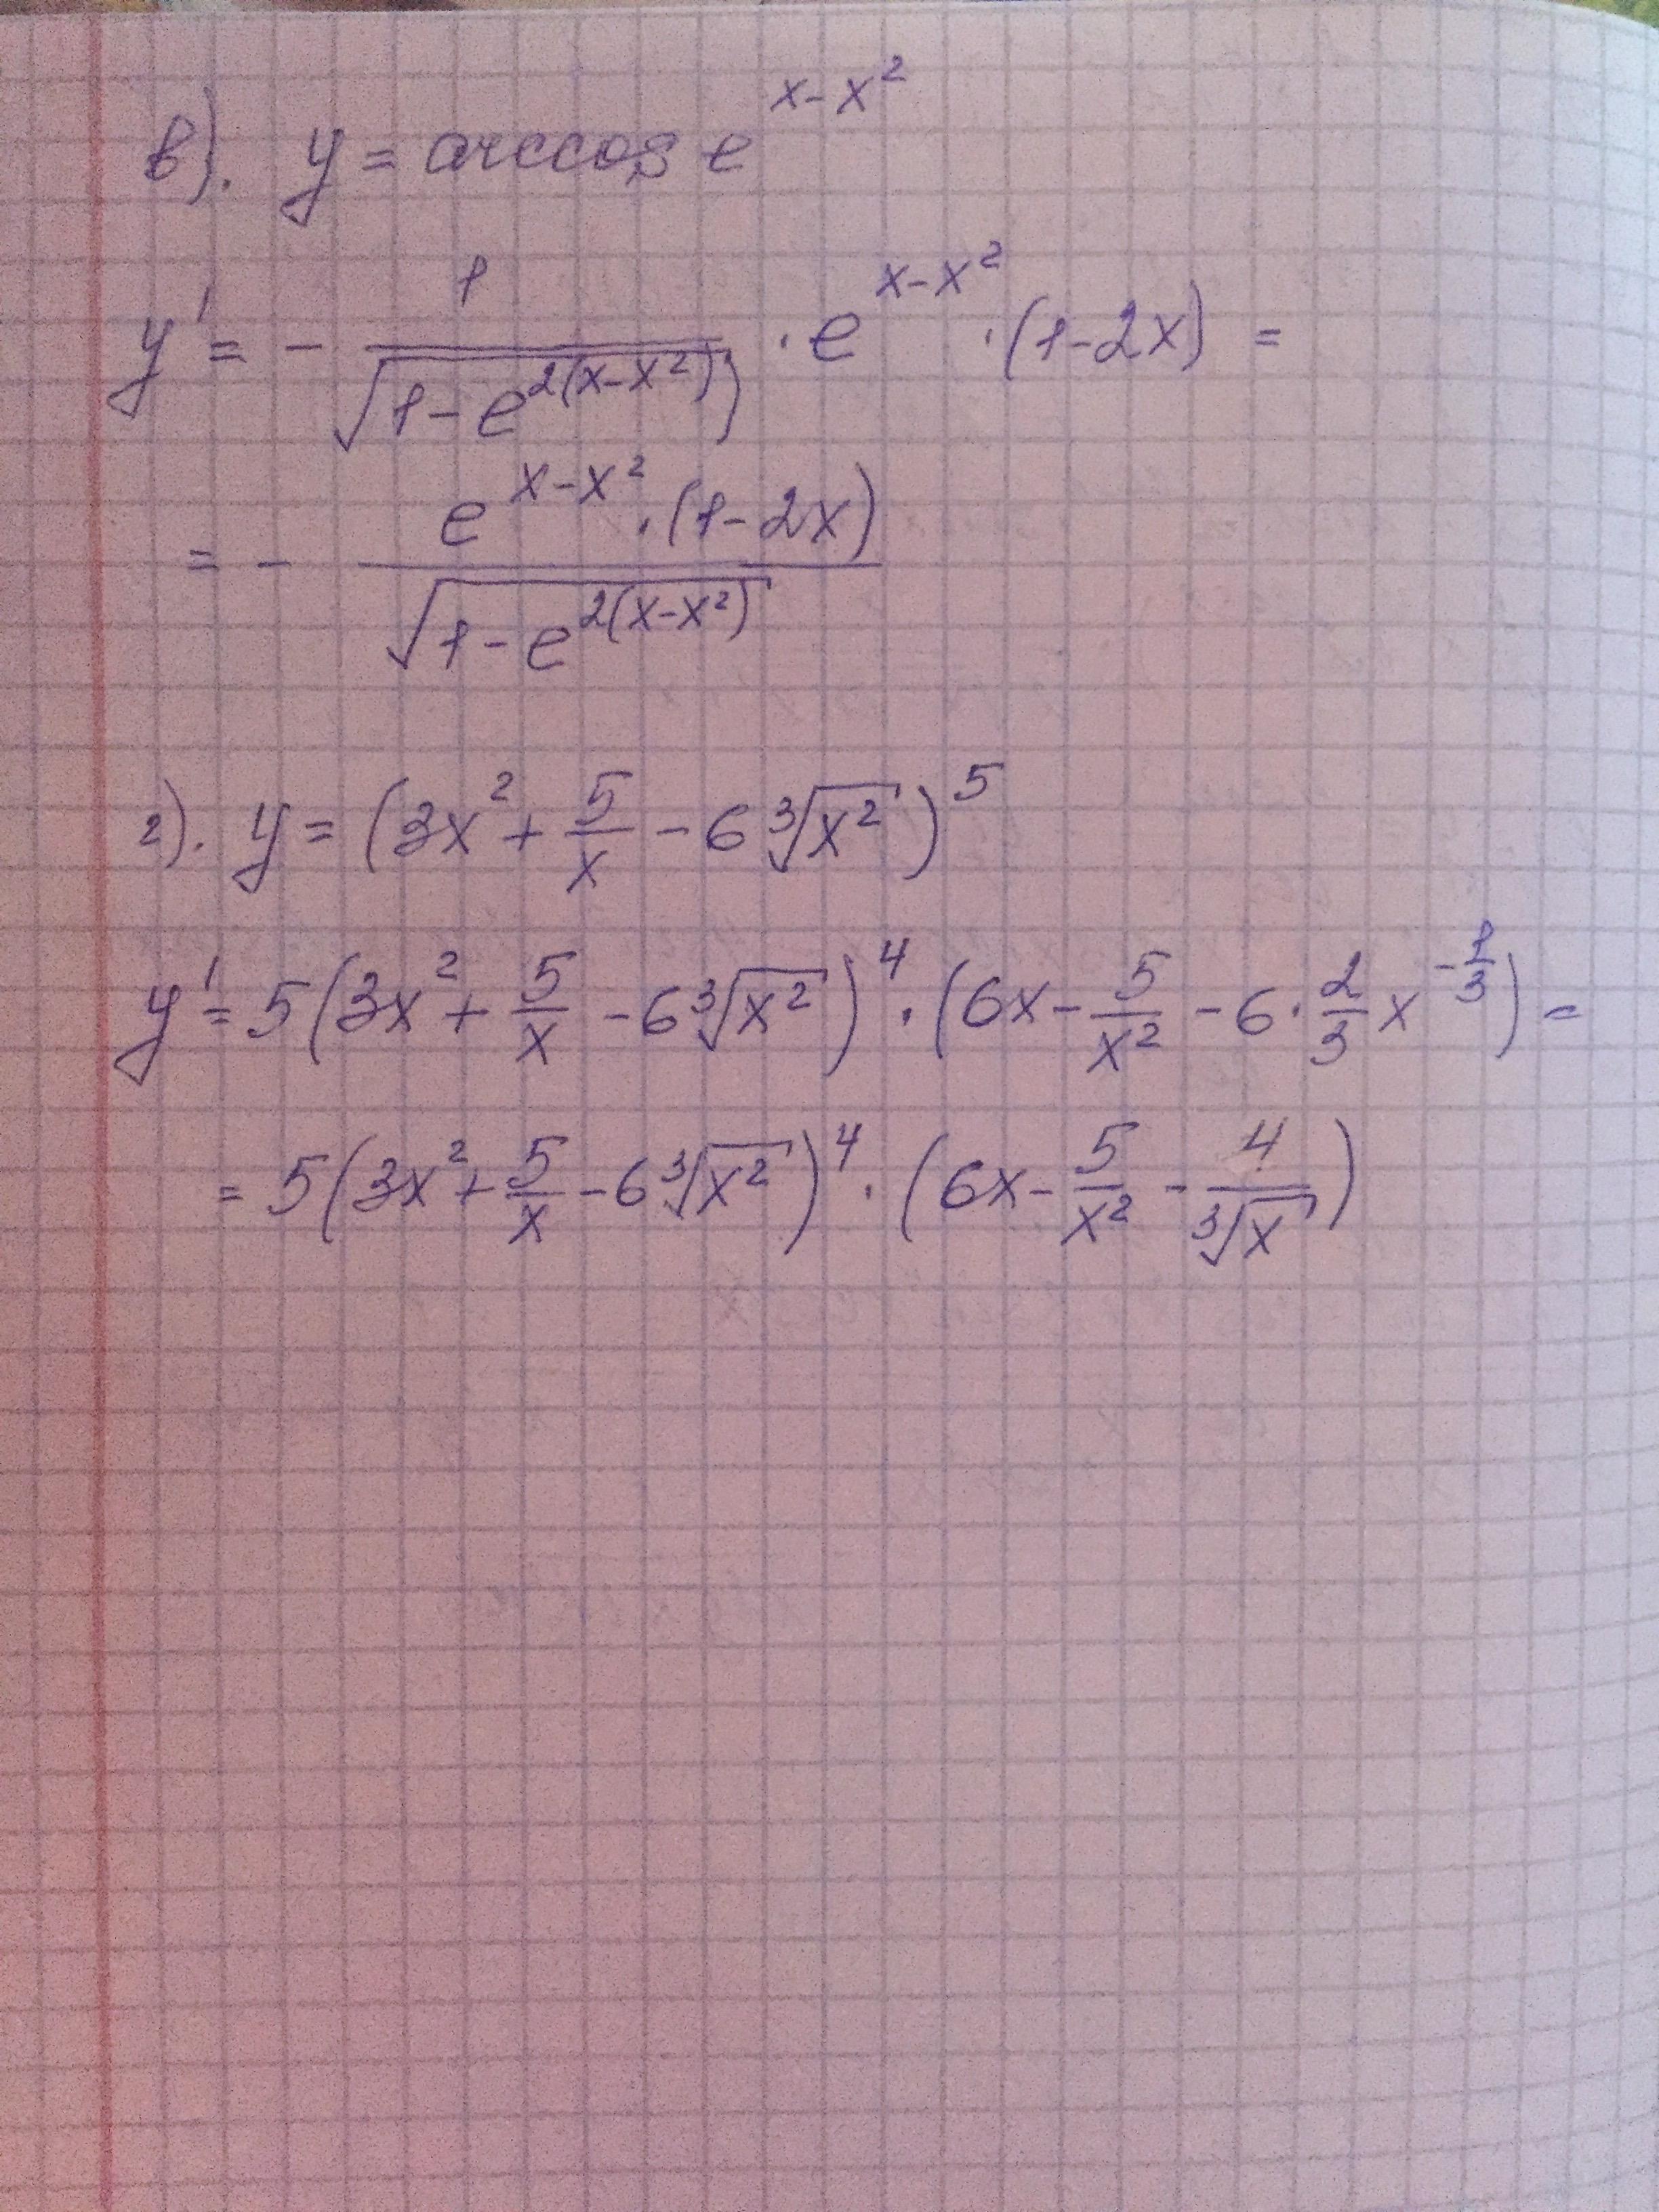 в). y = arccos e^{x-x^2}
y' = - \frac{1}{\sqrt{1-e^{2(x-x^2)}}} · e^{x-x^2} · (1-2x) =
= - \frac{e^{x-x^2} · (1-2x)}{\sqrt{1-e^{2(x-x^2)}}}
г). y = (3x^2 + \frac{5}{x} - 6\sqrt[3]{x^2})^5
y' = 5(3x^2 + \frac{5}{x} - 6\sqrt[3]{x^2})^4 · (6x - \frac{5}{x^2} - 6 · \frac{2}{3} x^{-\frac{1}{3}}) =
= 5(3x^2 + \frac{5}{x} - 6\sqrt[3]{x^2})^4 · (6x - \frac{5}{x^2} - \frac{4}{\sqrt[3]{x}})